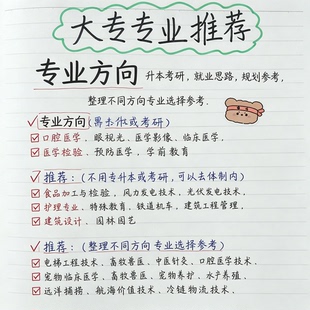 大专专业推荐
专业方向 升本考研，就业思路，规划参考，
整理不同方向专业选择参考.
专业方向(或考研)
口腔医学、眼视光、医学影像、临床医学、
医学检验、预防医学、学前教育
推荐：(不用专升本或考研，可以去体制内)
食品加工与检验、风力发电技术、光伏发电技术、
护理专业、特殊教育、铁道机车、建筑工程管理、
建筑设计、园林园艺
推荐：(整理不同方向专业选择参考)
电梯工程技术、畜牧兽医、中医针灸、口腔医学技术、
宠物临床医学、畜牧兽医、宠物养护、水产养殖、
远洋捕捞、航海价值技术、冷链物流技术、